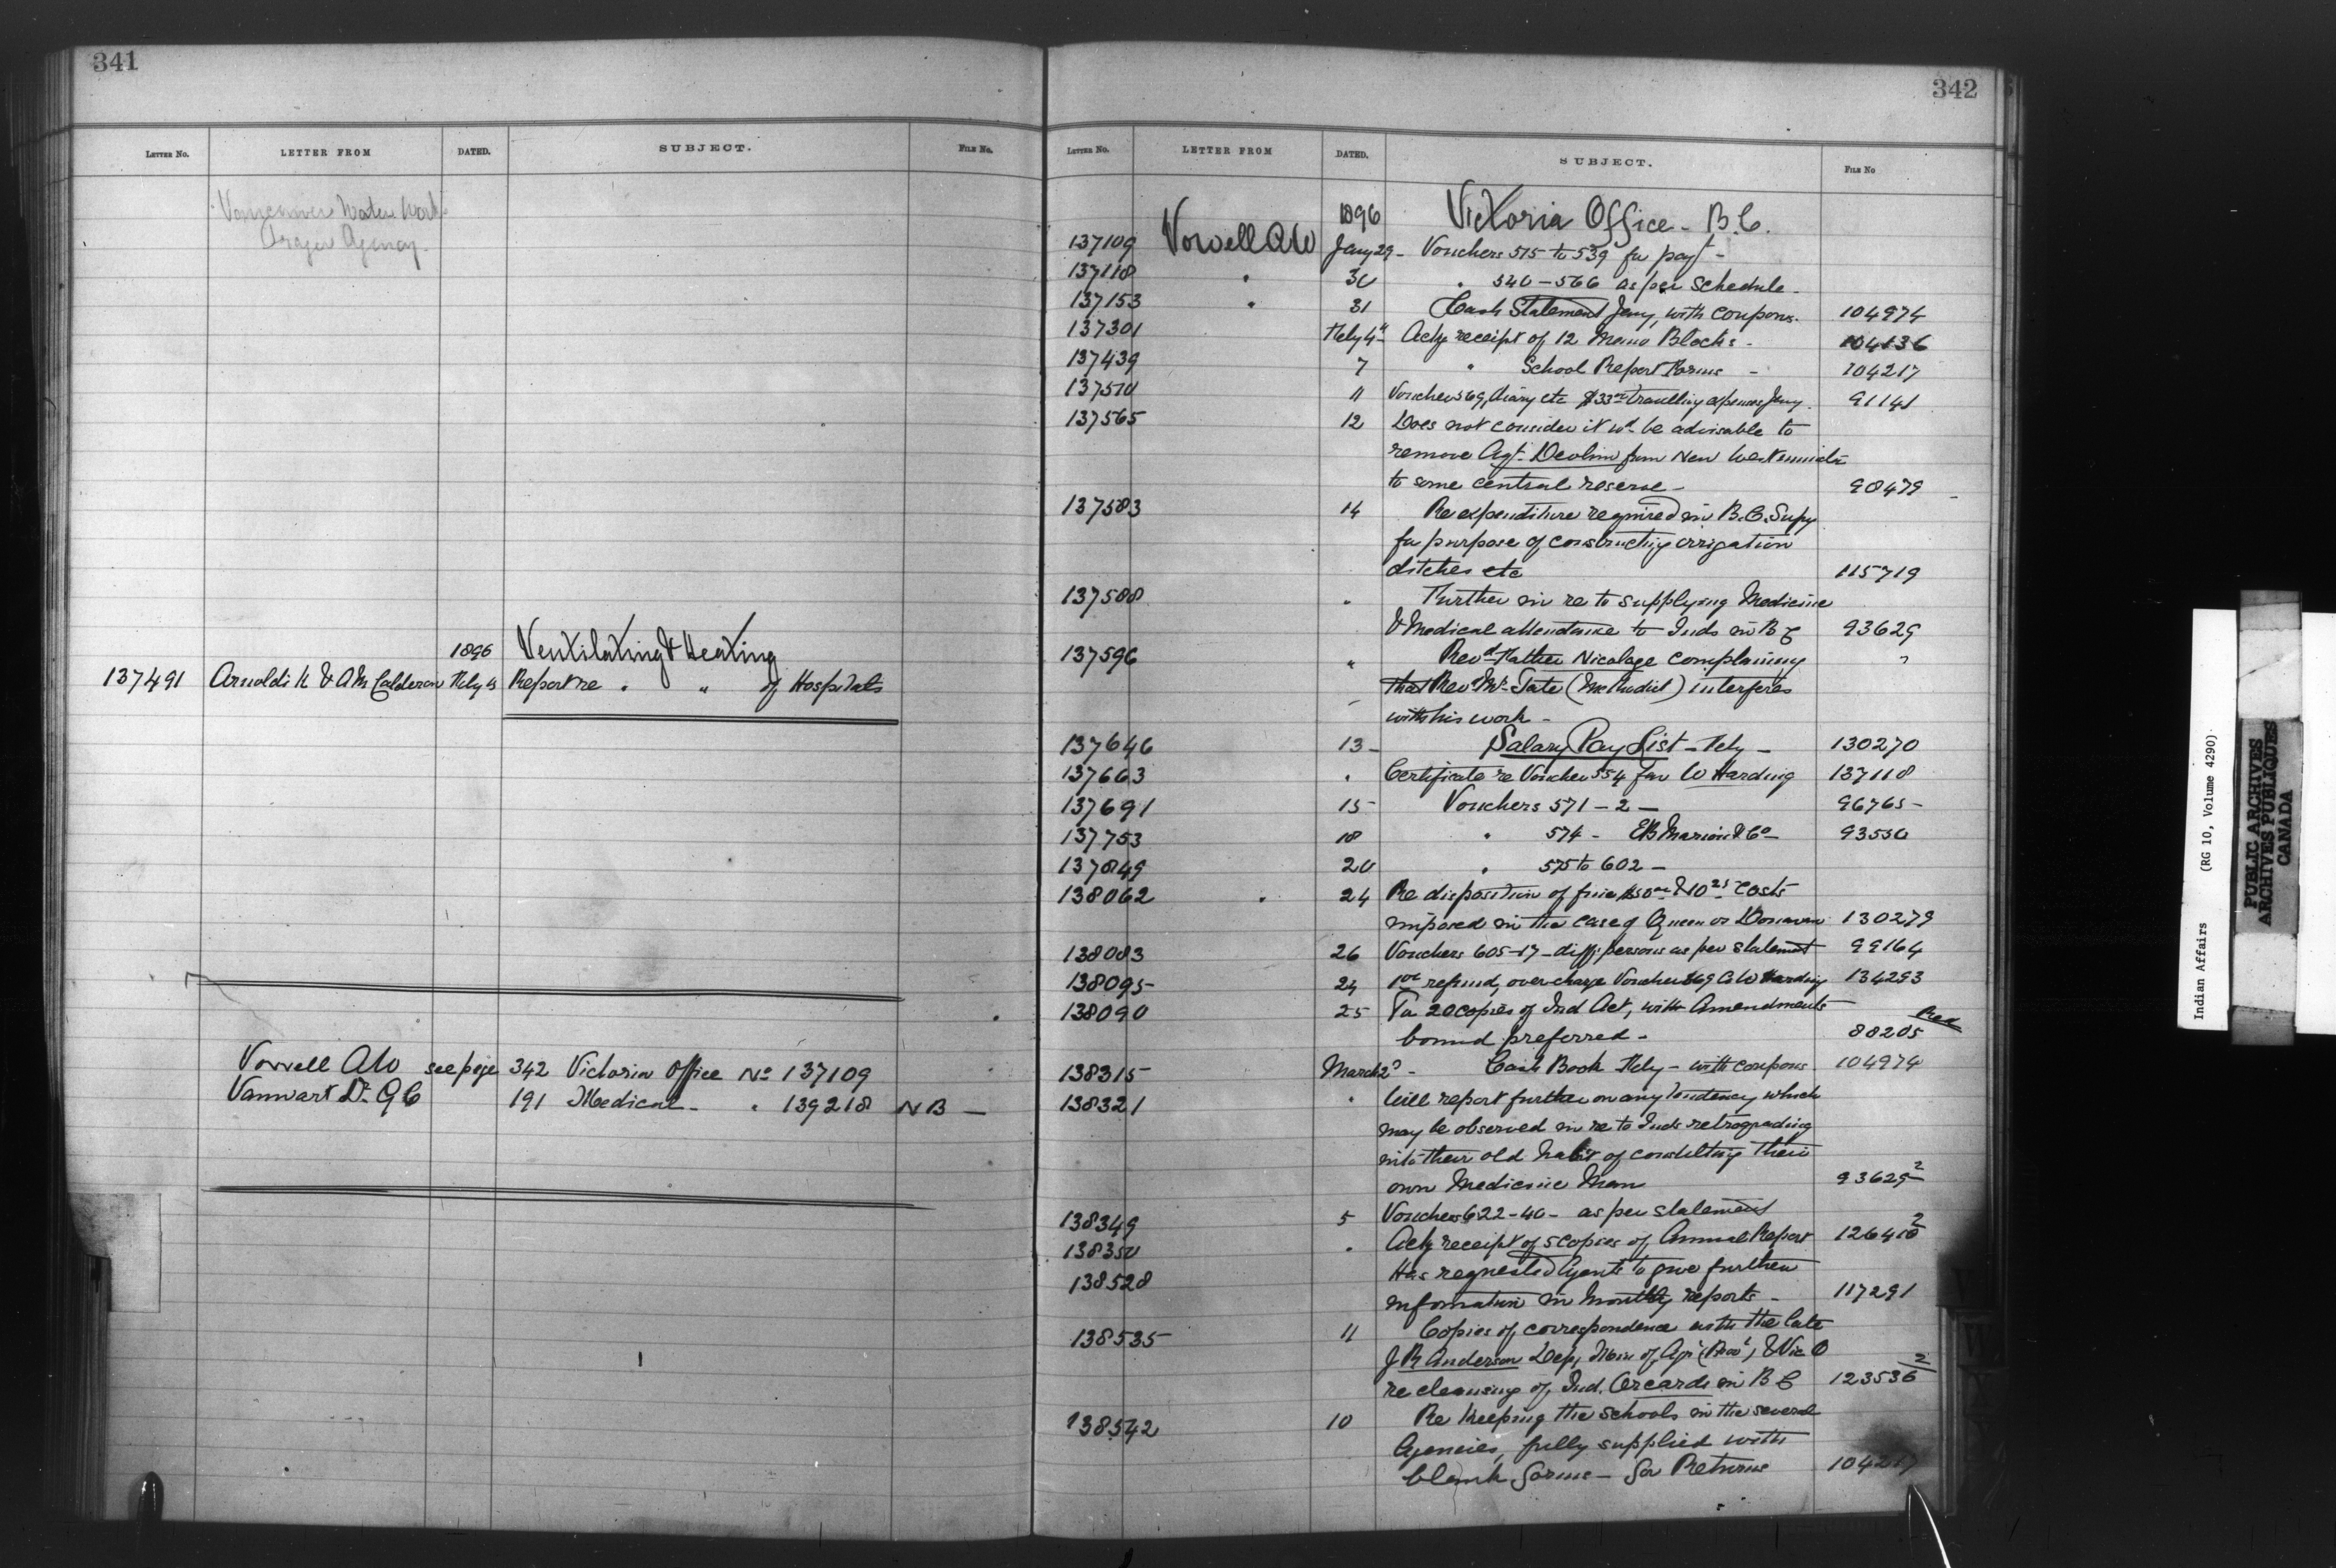 341
LETTER NO. LETTER FROM DATED. SUBJECT. FILE NO.
Vancouver Water Works
Fraser Agency.
1896 Ventilating & Heating
137491 Arnoldi K & A M Calderon Feby 13 Report re " " of Hospitals
Vowell AW see page 342 Victoria Office No 137109
Vanwart Dr G C 191 Medical - " 139218 N B -
342
LETTER NO. LETTER FROM DATED. SUBJECT. FILE NO
1896 Victoria Office - B.C.
137109 Vowell AW Jany 29 - Vouchers 515 to 539 for payt -
137118 " 30 " 540 - 566 as per Schedule -
137153 " 31 Cash Statement Jany, with coupons. 104974
137301 Feby 4" Ackg receipt of 12 Memo Blocks - 104136
137439 7 " School Report Forms - 104217
137510 11 Voucher 569, diary etc $33 travelling expenses Jany. 91141
137565 12 Does not consider it wd be advisable to
remove Agt. Devlin from New Westminster
to some central reserve - 98479 -
137583 14 Re expenditure required in B.C. Supy
for purpose of constructing irrigation
ditches etc 115719
137588 " Further in re to supplying Medicine
& Medical attendance to Inds in B C 93629
137596 " Revd Father Nicolaye complaining "
that Revd Mr. Tate (Methodist) interferes
with his work -
137646 13 - Salary Pay List - Feby - 130270
137663 " Certificate re Voucher 554 fav W Harding 137118
137691 15 - Vouchers 571 - 2 - 96765 -
137753 18 " 574 - EB Marvin & Co - 93550
137849 20 " 575 to 602 -
138062 " 24 Re disposition of fine $50 & 10 25 Costs
imposed in the case of Queen vs Donovan 130279
138083 26 Vouchers 605-17 - diff. persons as per statement 99164
138095 24 refund, overcharge Voucher 369 Harding 134293
138090 25 For 20 copies of Ind Act, with Amendments
bound preferred - 88205
138315 March 2d - Cash Book Feby - with coupons 104974
138321 " Will report further on any tendency which
may be observed in re to Inds retrograding
into their old habit of consulting their
own Medicine Men 93629-2
138349 5 Vouchers 622 - 40 - as per statement
138350 " Ackg receipt of 5 copies of Annual Report
138528 Has requested Agents to give further
information in monthly reports - 117291
138535 11 Copies of correspondence with the late
J R Anderson Dep. Min of Agr (Prov) & Vic O
re cleansing of Ind. Orcards in B C 123536 2
138542 10 Re keeping the schools in the several
Agencies, fully supplied with
blank forms - for Returns 104217
Indian Affairs (RG 10, Volume 4290)
PUBLIC ARCHIVES
ARCHIVES PUBLIQUES
CANADA